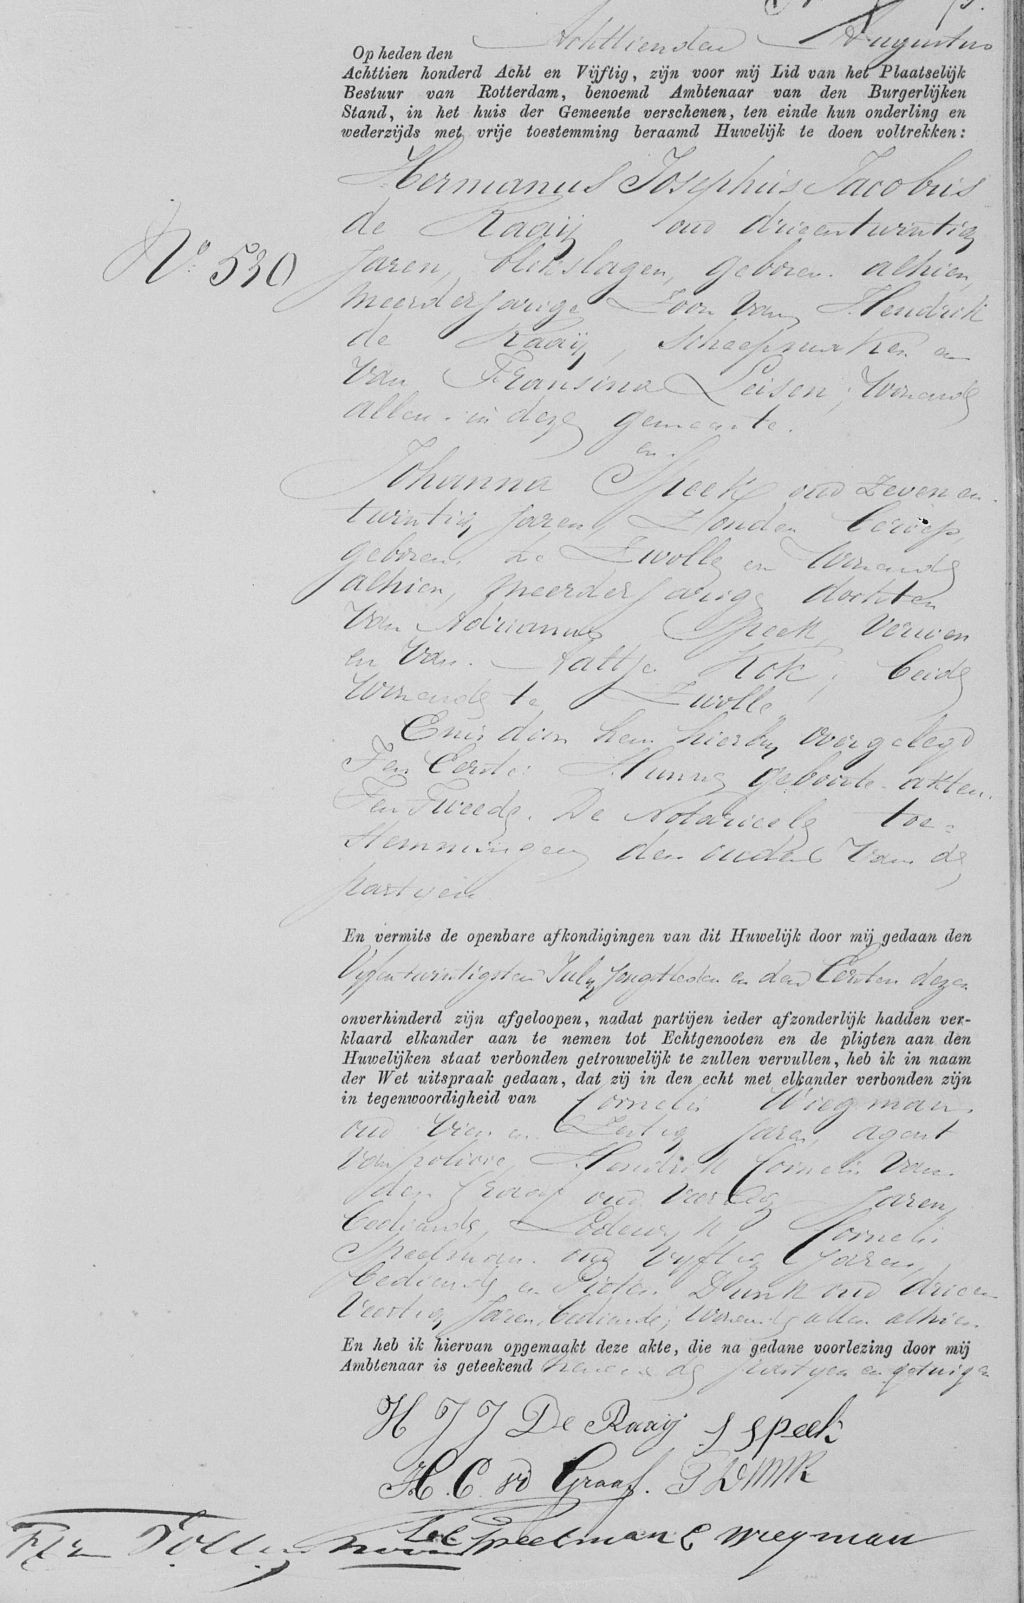 Op heden den Achttienden Augustus
Achttien honderd Acht en Vijftig, zijn voor mij Lid van het Plaatselijk
Bestuur van Rotterdam, benoemd Ambtenaar van den Burgerlijken
Stand, in het huis der Gemeente verschenen, ten einde hun onderling en
wederzijds met vrije toestemming beraamd Huwelijk te doen voltrekken:
Hermanus Josephus Jacobus
de Raaij oud drieentwintig
No. 530
Jaren, blikslager, geboren alhier,
meerderjarige Zoon van Hendrik
de Raaij, scheepmaker en
van Fransina Leisen, wonende
allen in deze gemeente.
en
Johanna Speek oud zeven en
twintig Jaren, Zonder beroep,
geboren te Zwolle en wonende
alhier, meerderjarige dochter
van Adrianus Speek, verwer
en van Aaltje Kok, beide
wonende te Zwolle
En is door hen hierbij overgelegd
Ten Eerste: Hunne geboorte akten.
Ten Tweede. De Notarieele toe=
stemmingen der ouders van de
partijen
En vermits de openbare afkondigingen van dit Huwelijk door mij gedaan den
Vijfentwintigsten July jongstleden en den Eersten dezer
onverhinderd zijn afgeloopen, nadat partijen ieder afzonderlijk hadden ver-
klaard elkander aan te nemen tot Echtgenooten en de pligten aan den
Huwelijken staat verbonden getrouwelijk te zullen vervullen, heb ik in naam
der Wet uitspraak gedaan, dat zij in den echt met elkander verbonden zijn
in tegenwoordigheid van Cornelis Wiegman
oud vier en Zestig Jaren, agent
van policie, Hendrik Cornelis van
der Graaf oud veertig Jaren,
bediende, Lodewijk Cornelis
Speelman oud vijftig Jaren,
bediende en Pieter Dunk oud drieen
Veertig Jaren, bediende, wonende allen alhier.
En heb ik hiervan opgemaakt deze akte, die na gedane voorlezing door mij
Ambtenaar is geteekend nevens de partijen en getuigen
H J J De Raaij J Speek
H. C. vd Graaf. P DUNK
LC Speelman C wiegman